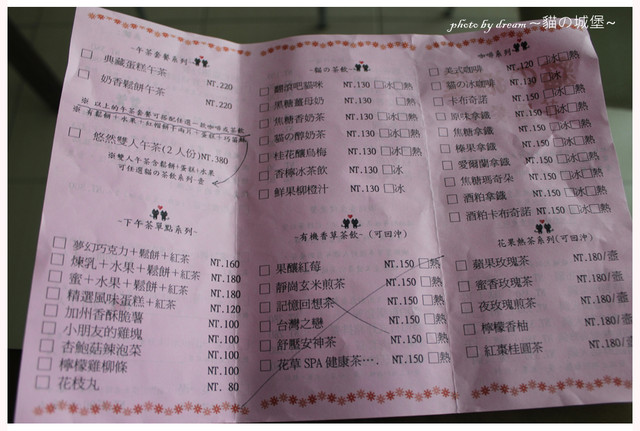 photo by dream ~貓の城堡~
-午茶套餐系列-
□ 典藏蛋糕午茶 NT.220
□ 奶香鬆餅午茶 NT.220
※以上的午茶套餐可搭配任選一款咖啡或茶飲
□ 悠然雙人午茶(2人份)NT.380
※雙人午茶含鬆餅+蛋糕+水果
可任選貓の茶飲系列 壹
-下午茶單點系列-
□ 夢幻巧克力+鬆餅+紅茶 NT.160
□ 煉乳+水果+鬆餅+紅茶 NT.180
□ 蜜+水果+鬆餅+紅茶 NT.180
□ 精選風味蛋糕+紅茶 NT.120
□ 加州香酥脆薯 NT.100
□ 小朋友的雞塊 NT.100
□ 杏鮑菇辣泡菜 NT.100
□ 檸檬雞柳條 NT.100
□ 花枝丸 NT. 80
-貓の茶飲-
□ 翻滾吧貓咪 NT.130 □冰□熱
□ 黑糖薑母奶 NT.130 □熱
□ 焦糖香奶茶 NT.130 □冰□熱
□ 貓の醇奶茶 NT.130 □冰□熱
□ 桂花釀烏梅 NT.130 □冰□熱
□ 香檸冰茶飲 NT.130 □冰
□ 鮮果柳橙汁 NT.130 □冰
-有機香草茶飲-(可回沖)
□ 果釀紅莓 NT.150 □熱
□ 靜崗玄米煎茶 NT.150 □熱
□ 記憶回想茶 NT.150 □熱
□ 台灣之戀 NT.150 □熱
□ 舒壓安神茶 NT.150 □熱
□ 花草SPA健康茶‥‥ NT.150 □熱
咖啡系列-
□ 美式咖啡 NT.120 □冰□熱
□ 貓の冰咖啡 NT.130 □冰
□ 卡布奇諾 NT.150 □冰□熱
□ 原味拿鐵 NT.150 □冰□熱
□ 焦糖拿鐵 NT.150 □冰□熱
□ 榛果拿鐵 NT.150 □冰□熱
□ 愛爾蘭拿鐵 NT.150 □冰□熱
□ 焦糖瑪奇朵 NT.150 □冰□熱
□ 酒粕拿鐵 NT.150 □冰□熱
□ 酒粕卡布奇諾 NT.150 □冰□熱
花果熱茶系列(可回沖)
□ 蘋果玫瑰茶 NT.180/壺
□ 蜜香玫瑰茶 NT.180/壺
□ 夜玫瑰煎茶 NT.180/壺
□ 檸檬香柚 NT.180/壺
□ 紅棗桂圓茶 NT.180/壺